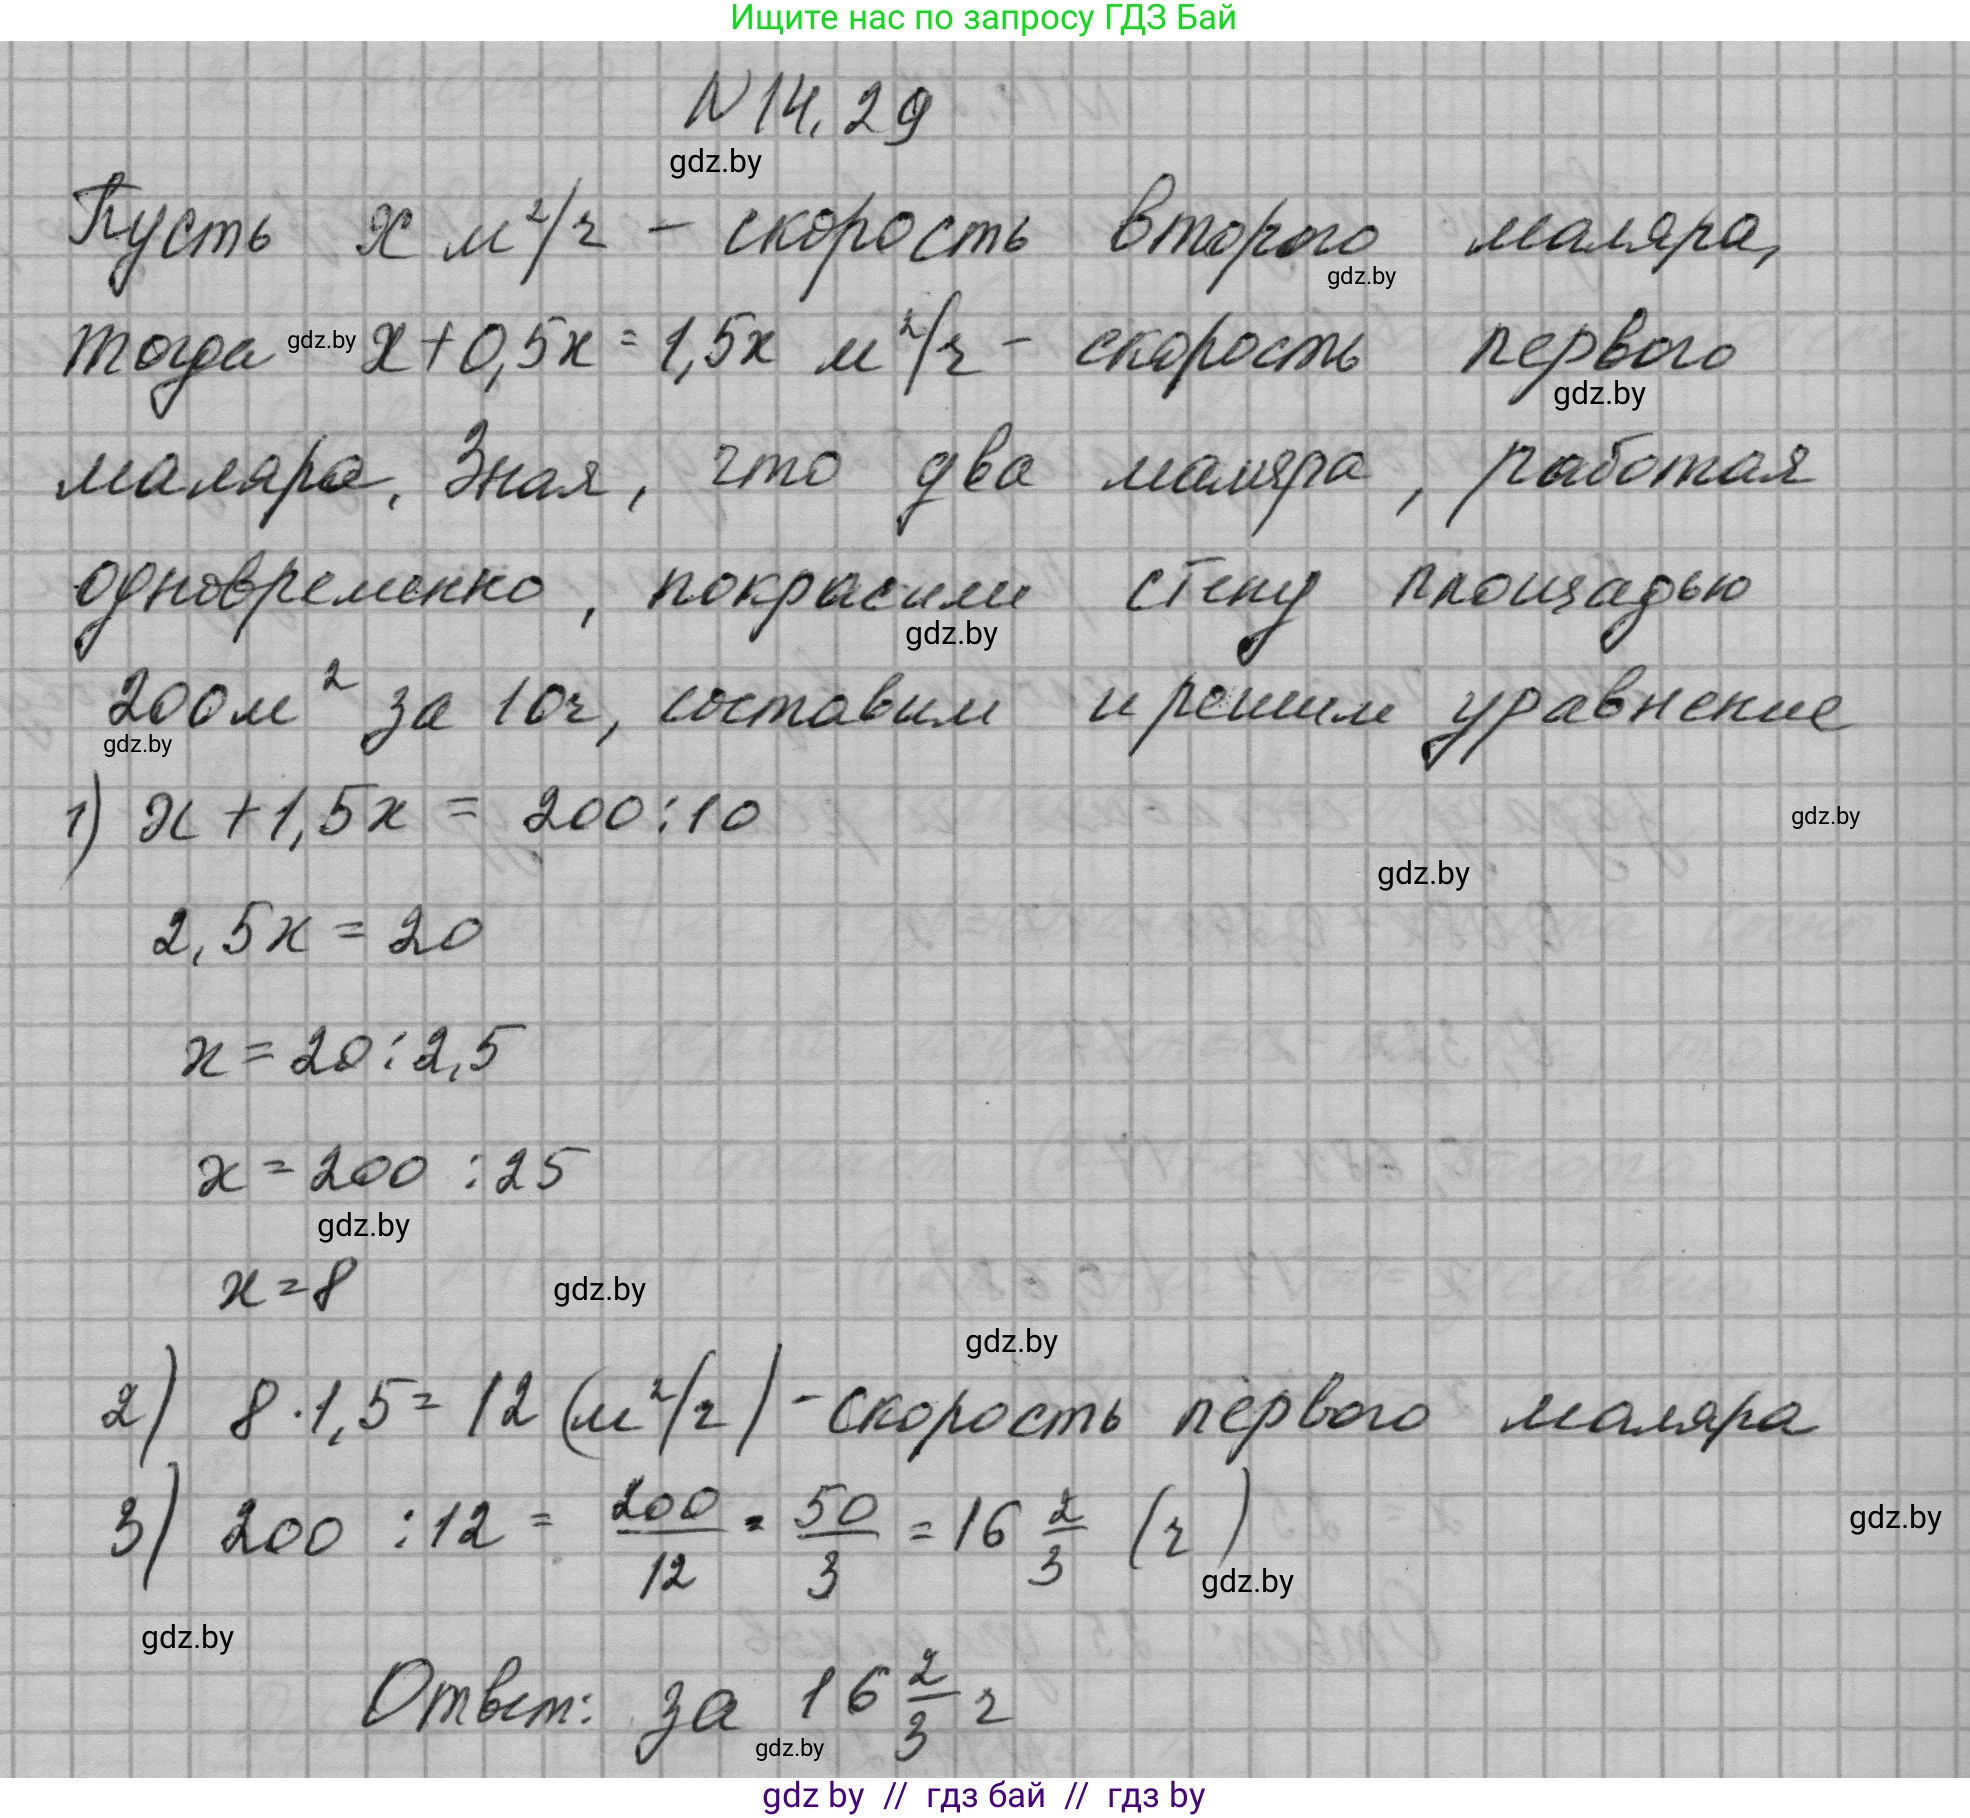 Ищите нас по запросу ГДЗ Бай
N 14.29
gdz.by
Пусть x м²/ч - скорость второго маляра,
gdz.by
тогда gdz.by x + 0,5x = 1,5x м²/ч - скорость первого
gdz.by
маляра. Зная, что два маляра, работая
одновременно, покрасили стену площадью
gdz.by
200м² за 10ч, составим и решим уравнение
gdz.by
1) x + 1,5x = 200:10
gdz.by
gdz.by
2,5x = 20
x = 20:2,5
x = 200 :25
gdz.by
x = 8
gdz.by
gdz.by
2) 8·1,5 = 12 (м²/ч) - скорость первого маляра
3) 200 :12 = 200/12 = 50/3 = 16 2/3 (ч)
gdz.by
gdz.by
gdz.by
Ответ: за 16 2/3 ч
gdz.by
gdz by // гдз бай // гдз by